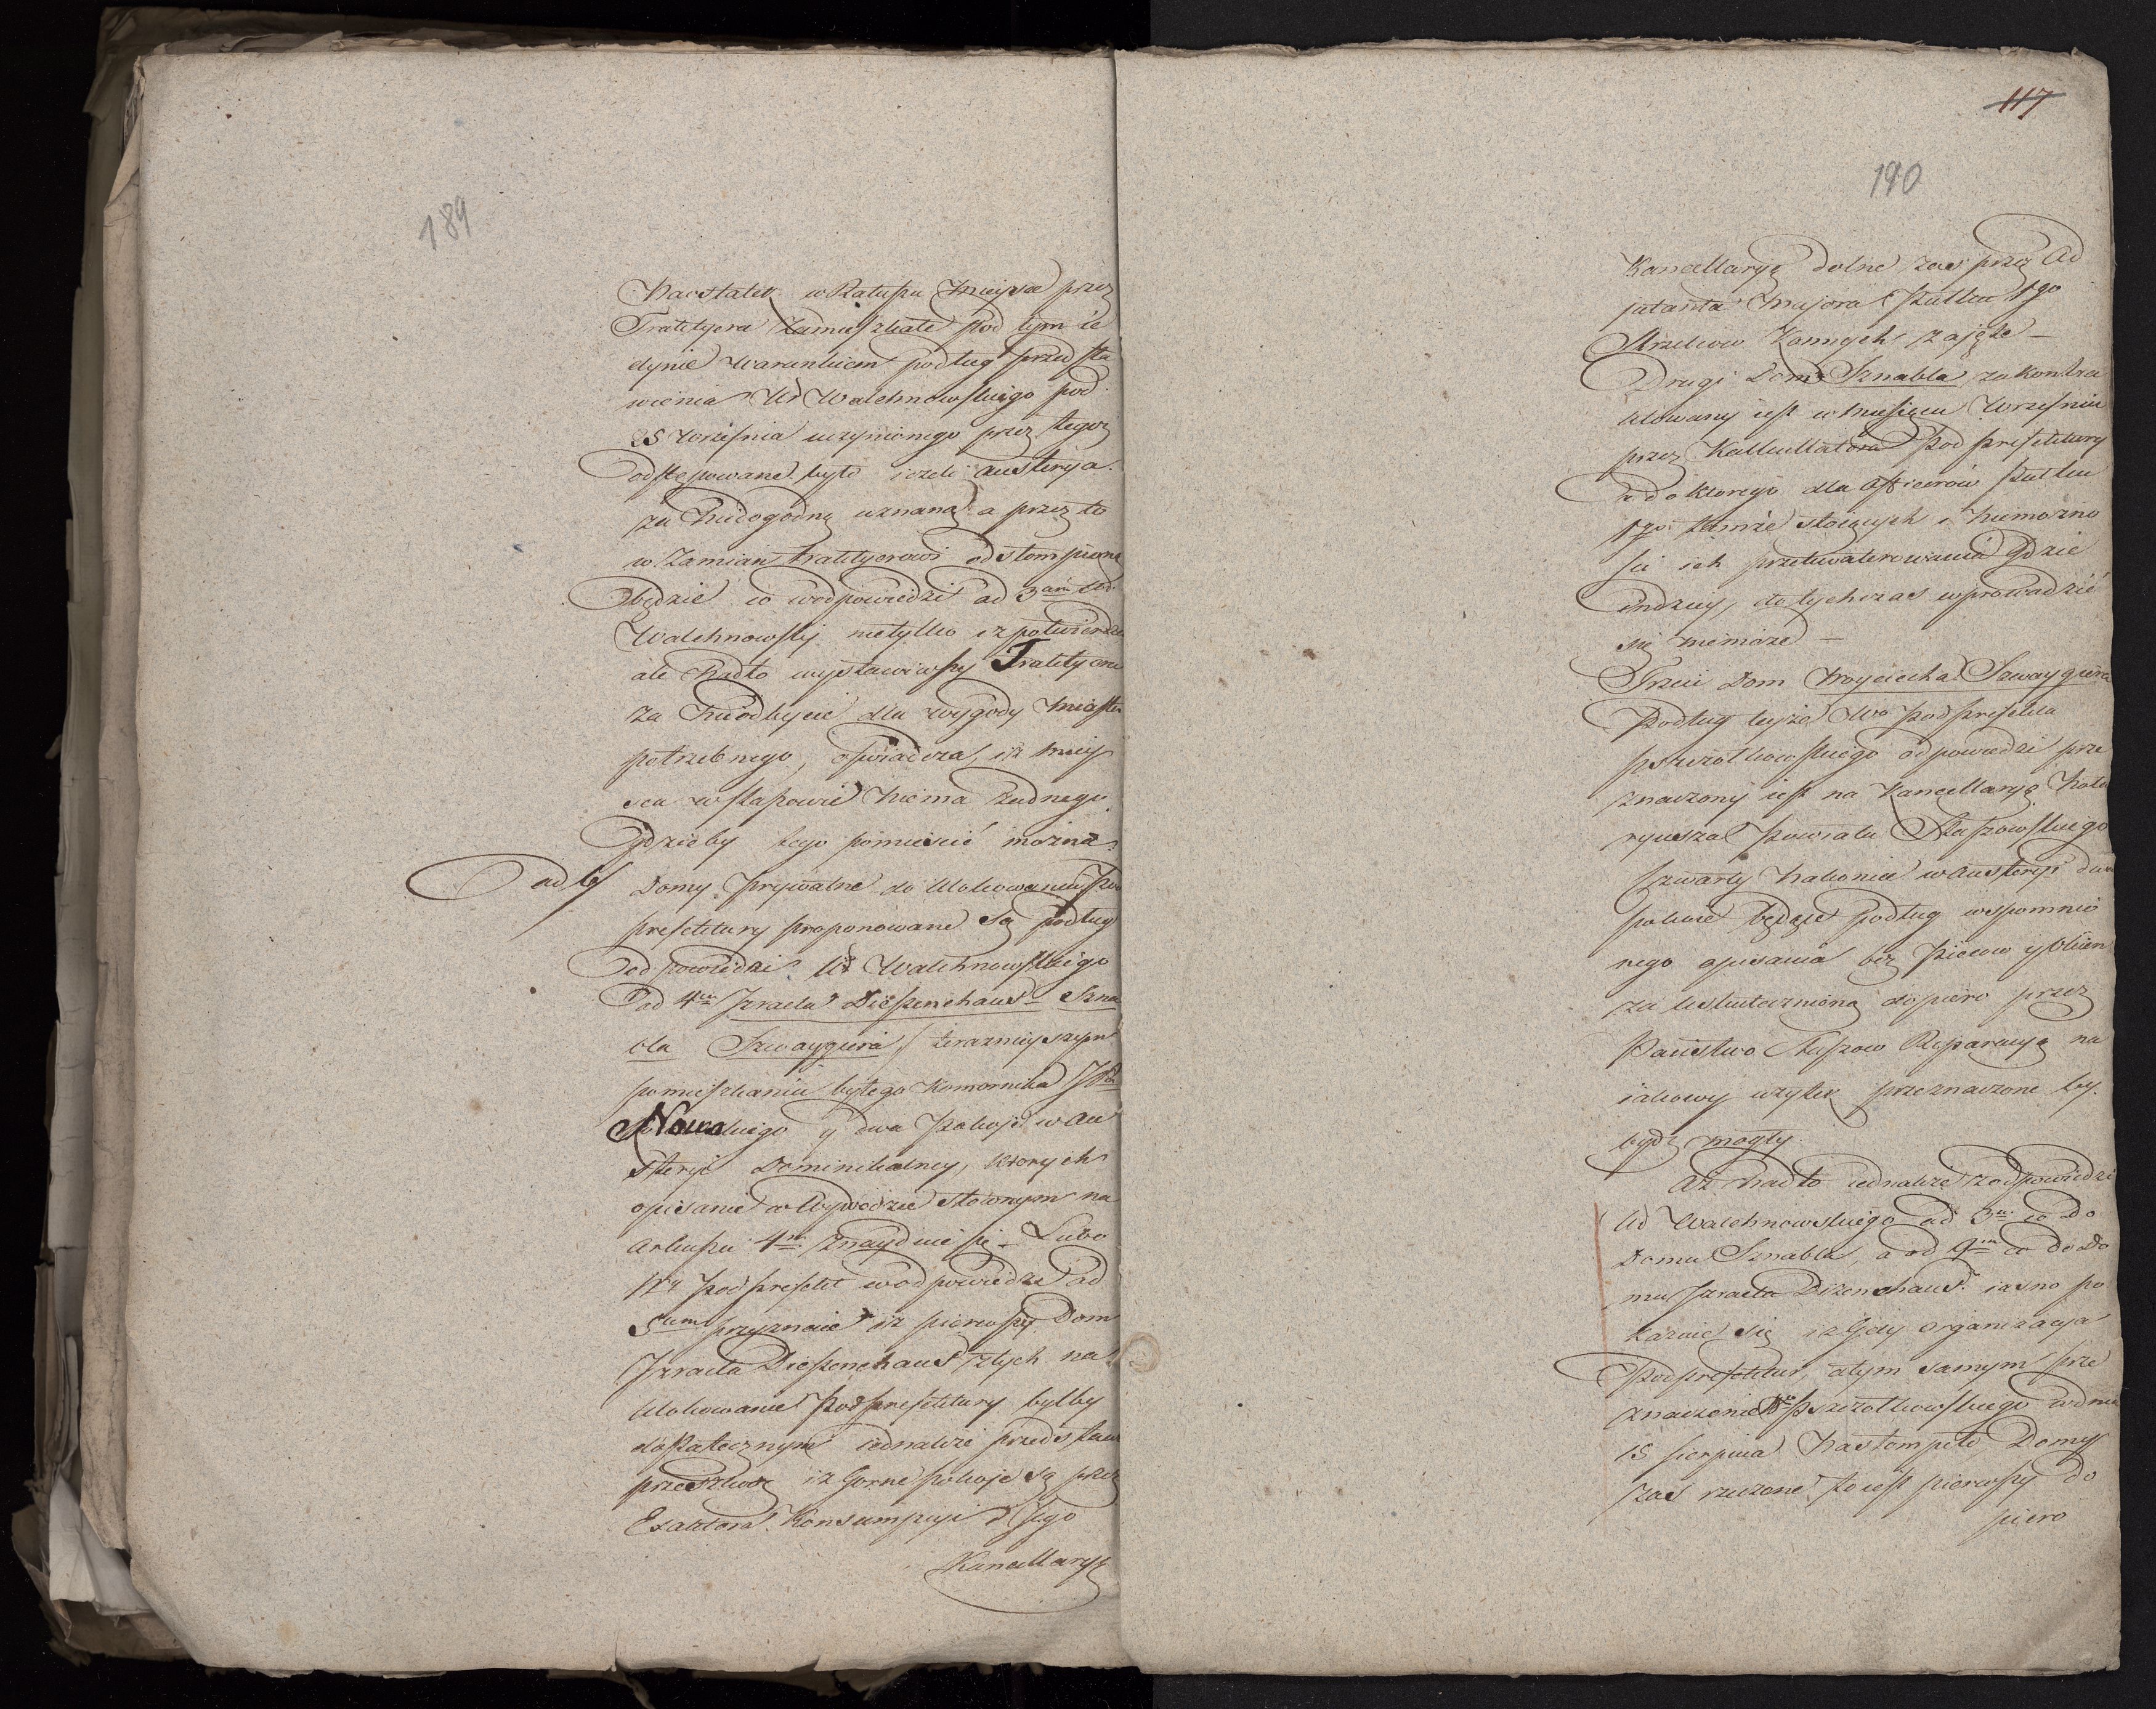 189
Naostatek w Ratuszu Mieysce przez
Traktyera zamieszkałe pod tym ie
dynie warunkiem podług przedsta
wienia Ur Walchnowskiego pod
25 Września uczynionego przez tegoż
odstępowane było ieżeli austerya
za Niedogodną uznaną a przez to
w Zamian traktyerowi odstompiona
będzie co w odpowiedzi ad 3um Ur
Walchnowski nietylko iż potwierdza
ale Nadto wystawiwszy Traktyera
za Nieodbycie dla wygody Miasta
potrzebnego, oświadcza, iż miey
sca w Staszowie Niema żadnego
Gdzieby tego pomieścić można.
ad 6 Domy Prywatne do Ulokowania Pod
prefektury proponowane są podług
odpowiedzi Ur Walchnowskiego
ad 4m Izraela Dieszenchaus Szna
bla Szwaygiera, terazniejszym
pomieszkaniu byłego Komornika
Nowo y dwa Pokoje w Au
steryi Dominikalney, których
opisanie w Wywodzie słownym na
Arkuszu 4m Znayduie się – Lubo
Podprefekt w odpowiedzi ad
5tum przyznaie iż pierwszy Dom
Izraela Dieszenchaus z tych na
Ulokowanie Podprefektury byłby
dostatecznym iednakże przedstawia
przeszkodę iż Gorne pokoje są przez
Exaktora Konsumpcyi i Jego
Kancellaryą
117
190
Kancellaryę dolne zaś przez Ad
jutanta Majora Pułku 1go
Strzelcow Konnych zajęte –
Drugi Dom Sznabla zakontra
ktowany iest w Miesiącu Wrześniu
przez Kalkulatora Podprefektury
do ktorego dla Officierów Pułku
1go tamże stoiących i Niemożno
ści ich przekwaterowania Gdzie
indziey, dotychczas wprowadzić
się niemoże –
Trzeci Dom Woyciecha Szwaygiera
Podług teyże Wo Podprefekta
Pszczołkowskiego odpowiedzi prze
znaczony iest na Kancellaryę Nota
ryusza Powiatu Staszowskiego
Czwarty Nakoniec w Austeryi dwa
pokoie będące podług wspomnio
nego opisania bez Pieców y Okien
za uskutecznioną dopiero przez
Państwo Staszow Reparacyą na
iakowy użytek przeznaczone by.
bydź mogły.
Aż nadto iednakże z odpowiedzi
Ur Walchnowskiego ad 3m co do
Domu Sznabla, a ad 9m co do Do
mu Izraela Diszenchaus iasno po
kazuie się iż Gdy organizacya
Podprefektur, a tym samym prze
znaczenie Wo Pszczołkowskiego w dniu
15 sierpnia Nastompiło, Domy
zas rzeczone to iest pierwszy do
piero